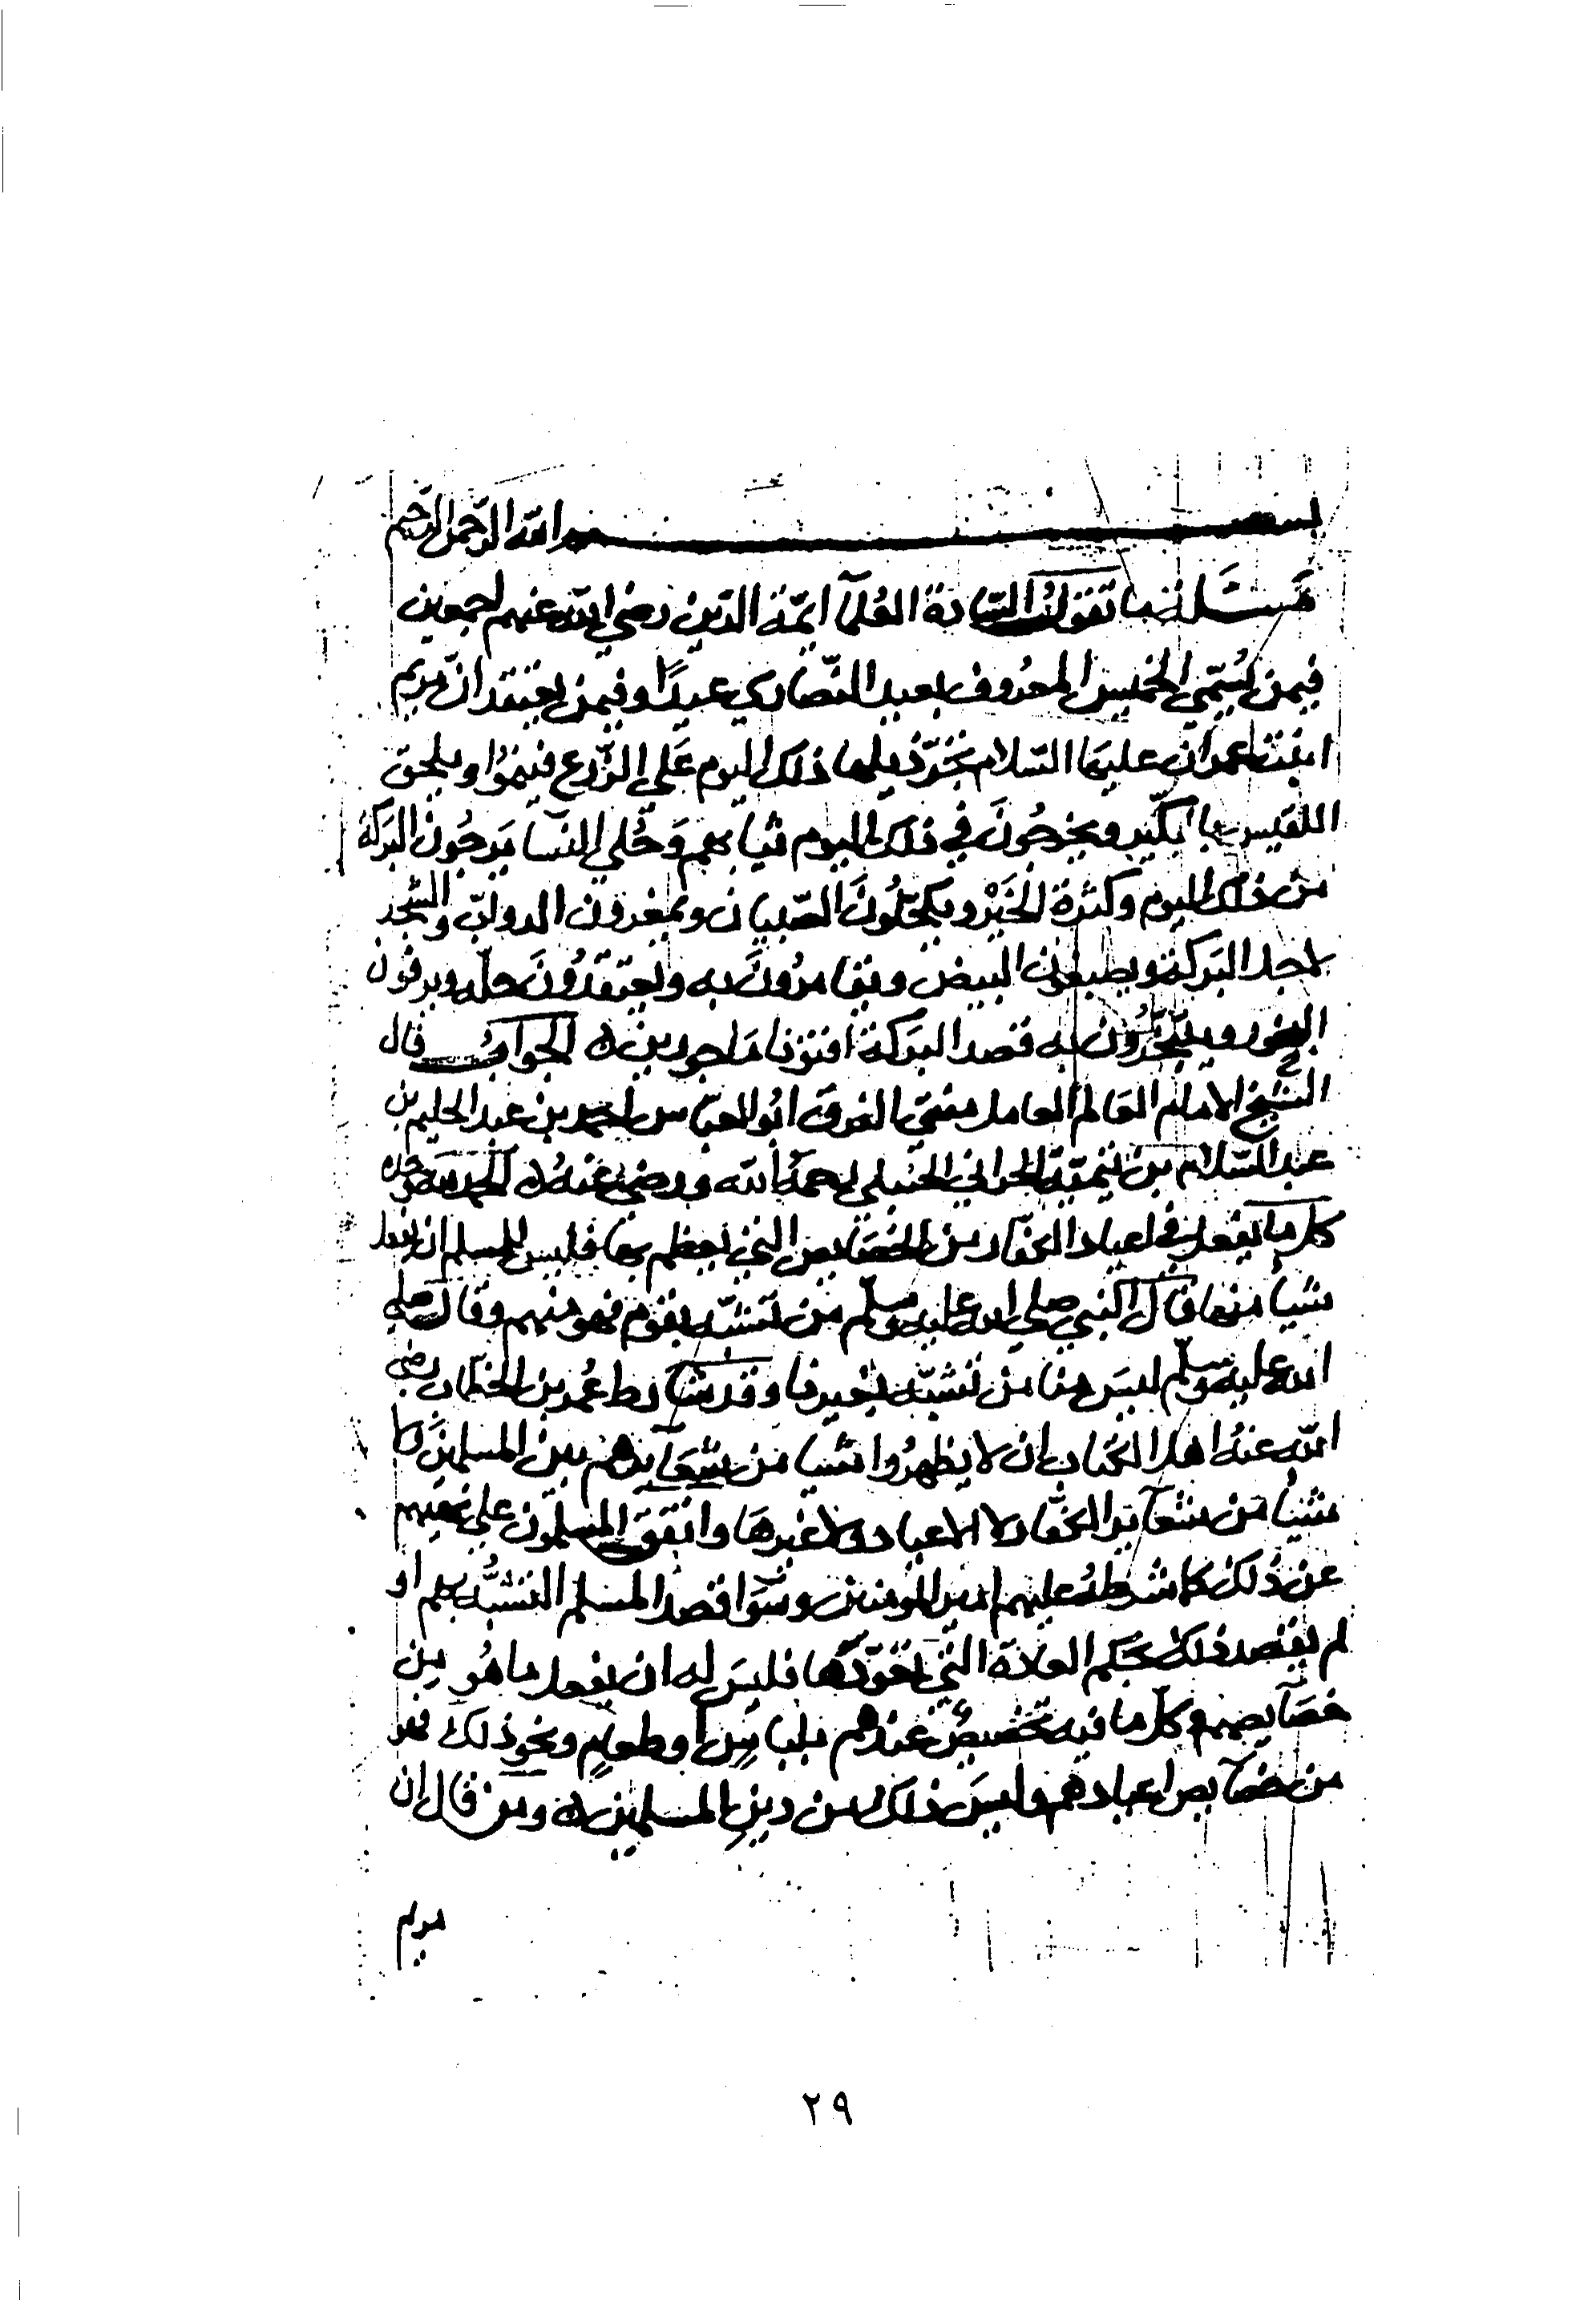 بسم الله الرحمن الرحيم
مَسْئَلة ما تقول السّادة العُلمآ ايمّة الدّين رضي الله عنهم اجمعين
فيمن يُسَمّي الخميس المعرُوف بعيد النّصاري عيدًا وفيمن يعتقد انّ مريم
ابنت عمران عليها السّلام تجُرّ ذيلها ذلك اليوم عَلي الزّرع فينمُوا ويلحق
اللقيس بالبكير ويخرجُونَ في ذلك اليوم ثيابهم وَحُلي النسا يَرجُون البَركة
من ذلك اليوم وكثرة الخَيْر ويكحّلُونَ الصّبيان ويمغرون الدوابّ والشجر
لاجل البَركة ويصبغون البيض ويقامرُونَ به ويعتقدُونَ حلّه ويرقون
البخور ويتبخّرُون به قصد البَركة افتونا مَاجورين ٥ الجوابُ قال
الشّيخ الامام العَالم العامل مفتي الفرق ابُو العبّاس احمد بن عبد الحليم بن
عبد السّلام بن تيميّة الحراني الحنبلي رحمَهُ الله ورضي عنهُ ٥ الحمد لله وحده
كل ما يفعل في اعياد الكفّار من الخصَايص التي يعظم بها فليس للمسلم ان يفعل
شيا منها قال النبي صلي الله عليه وسلّم من تشبّه بقوم فهو منهم وقال صلي
الله عليه وسلّم ليسَ منا من تشبّه بغيرنا وقد شارط عُمر بن الخطّاب رضي
الله عنهُ اهل الكتاب ان لا يظهرُوا شيا من شعَايرهم بين المسلمينَ ولا
شيئا من شعَآير الكفّار لا الاعياد ولا غيرها واتفقَ المسلمُون علي نهيهم
عن ذلك كما شرطهُ عليهم امير المومنين وسَوَا قصد المسلم التشبّه بهم او
لم يقصد ذلك بحكم العادة التي تعَوّدَها فليسَ له ان يفعل ما هُو من
خصَآيصهم وكلّ ما فيه تخصيصٌ عندهم بلباسٍ او طعامٍ ونحو ذلك فهو
من خصآيص اعيادهم وليسَ ذلك من دينِ المسلمين ٥ ومن قال ان
مريم
٢٩